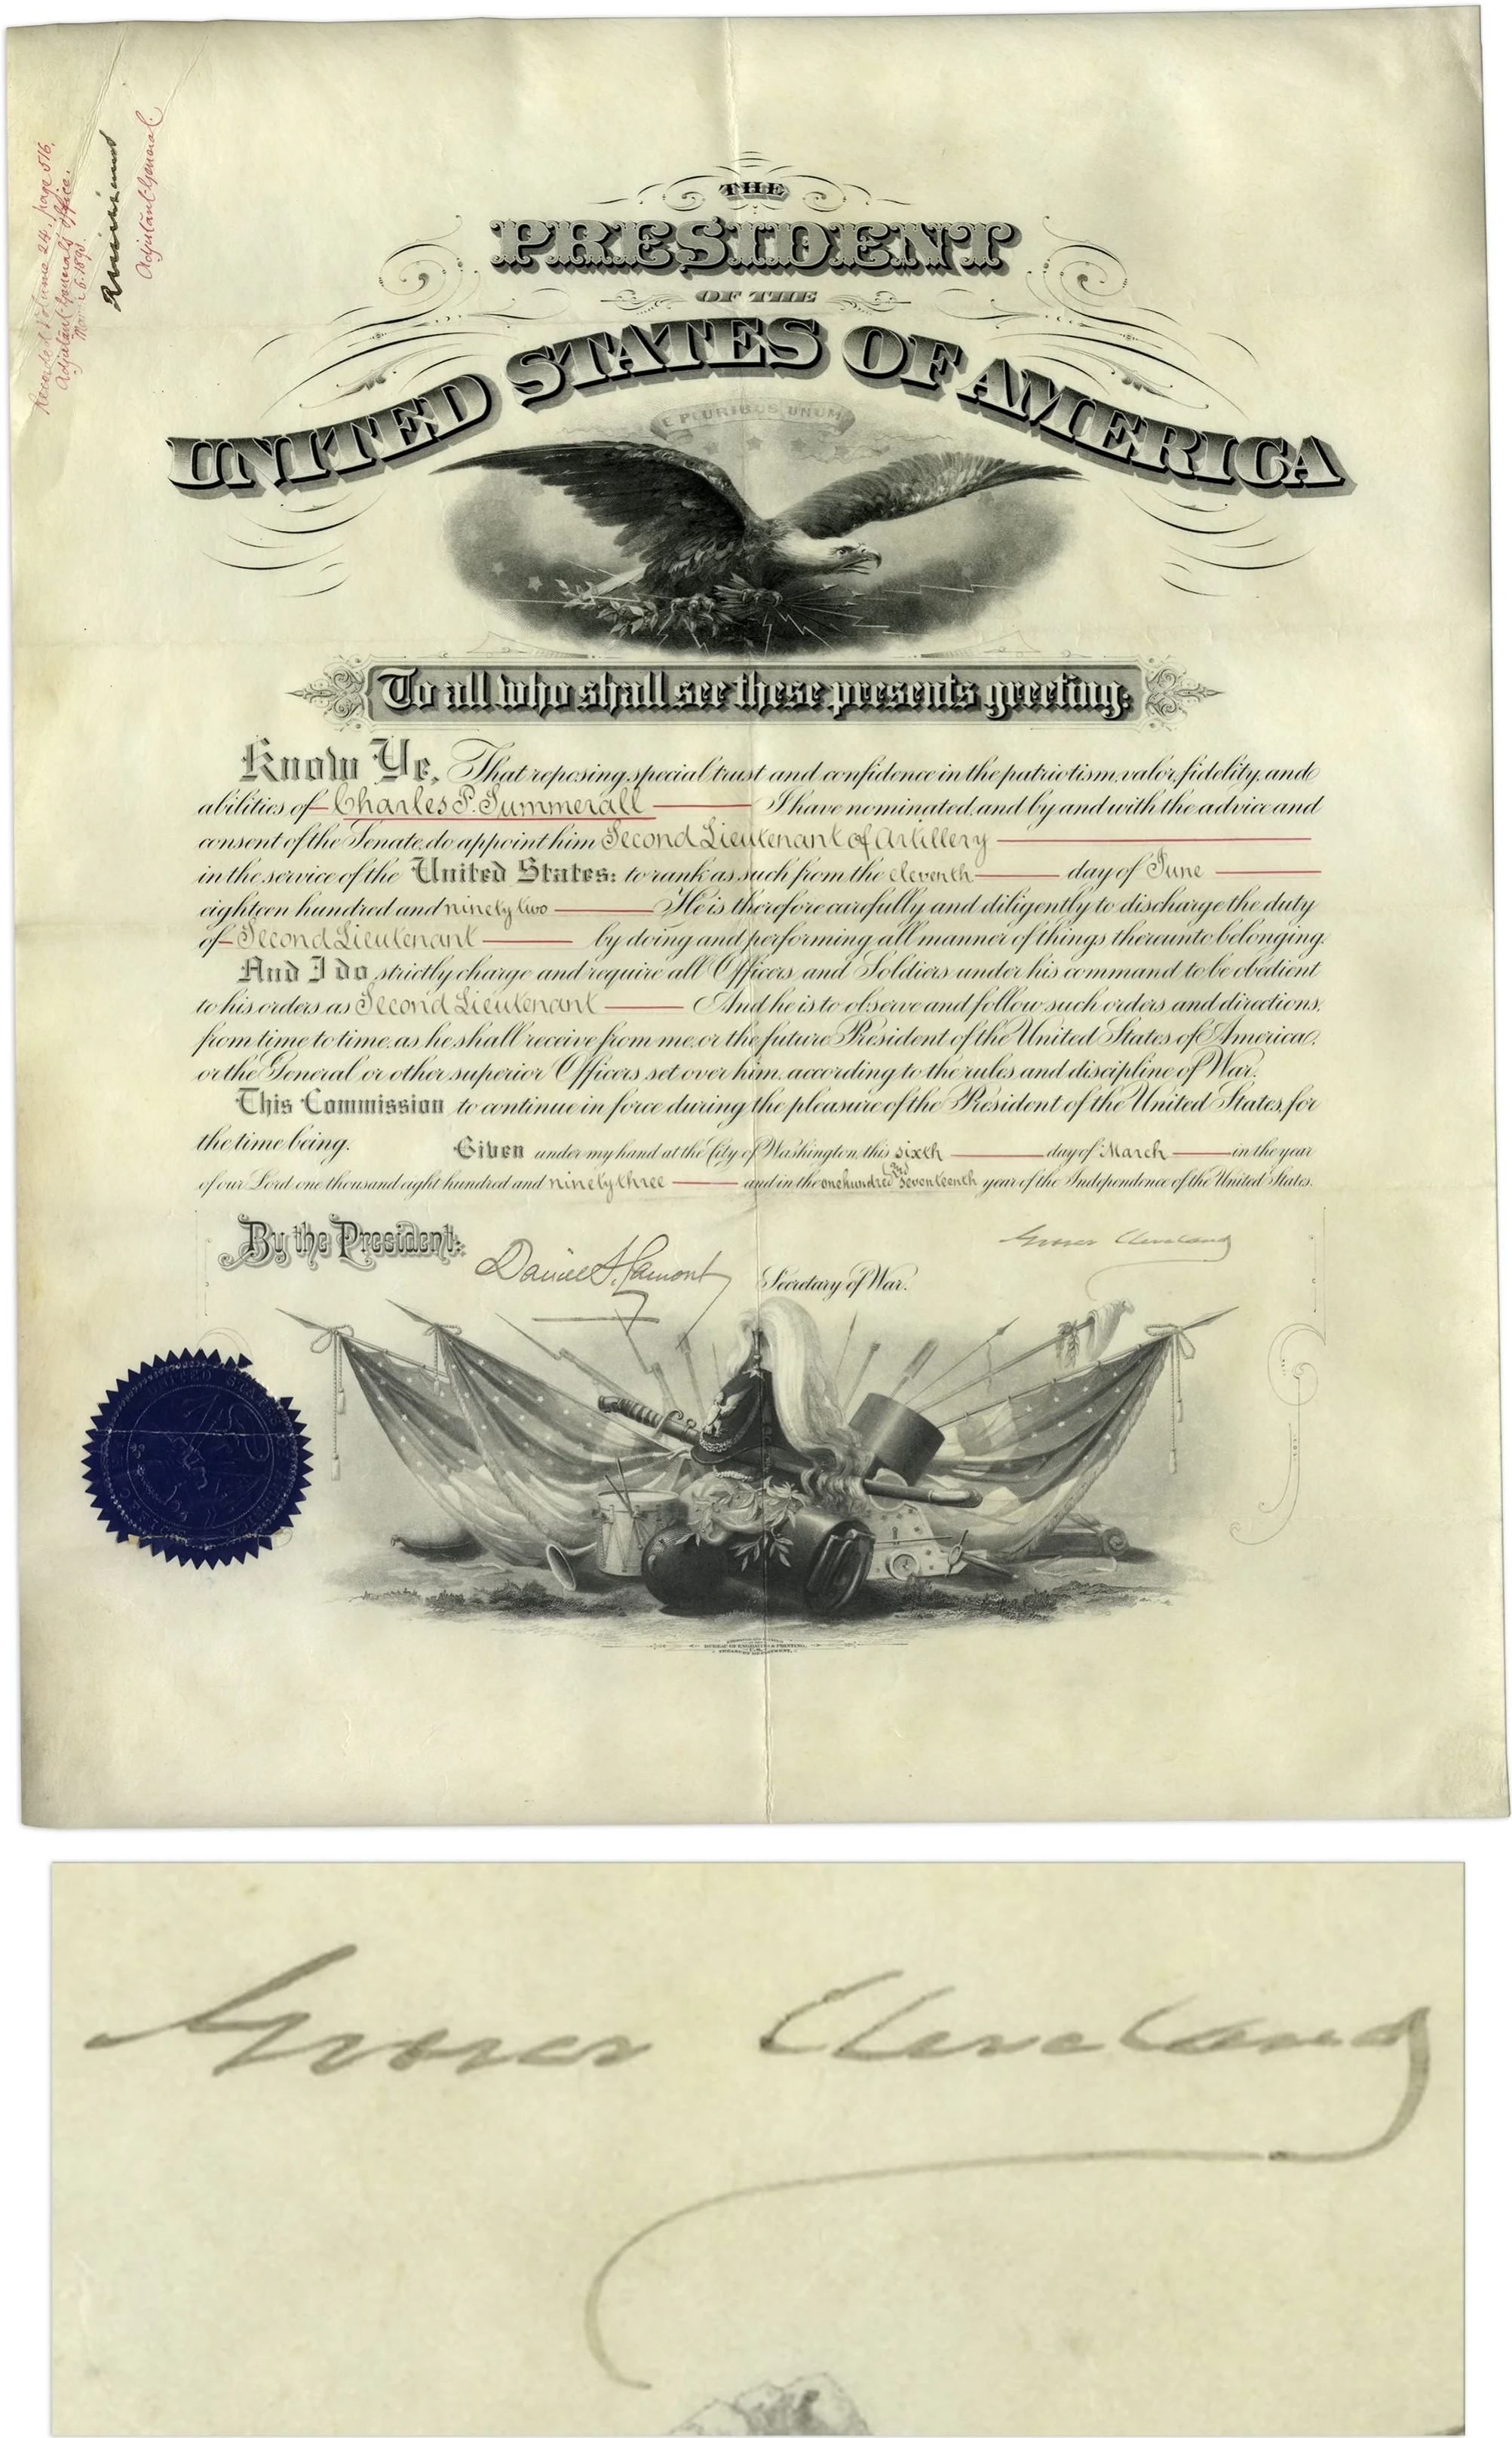 Recorded Volume 24, page 516,
Adjutant General's Office.
Adjutant General.
THE
PRESIDENT
OF THE
UNITED STATES OF AMERICA
E PLURIBUS UNUM
To all who shall see these presents greeting:
Know Ye, That reposing special trust and confidence in the patriotism, valor, fidelity, and
abilities of Charles P. Summerall I have nominated, and by and with the advice and
consent of the Senate, do appoint him Second Lieutenant of Artillery
in the service of the United States: to rank as such from the eleventh day of June
eighteen hundred and ninety two He is therefore carefully and diligently to discharge the duty
of Second Lieutenant by doing and performing all manner of things thereunto belonging.
And I do strictly charge and require all Officers and Soldiers under his command to be obedient
to his orders as Second Lieutenant And he is to observe and follow such orders and directions,
from time to time, as he shall receive from me, or the future President of the United States of America,
or the General or other superior Officers set over him, according to the rules and discipline of War.
This Commission to continue in force during the pleasure of the President of the United States, for
the time being. Given under my hand at the City of Washington, this sixth day of March in the year
of our Lord one thousand eight hundred and ninety three and in the one hundred and seventeenth year of the Independence of the United States.
By the President:
Grover Cleveland
Daniel S. Lamont Secretary of War.
BUREAU OF ENGRAVING & PRINTING,
TREASURY DEPARTMENT.
Grover Cleveland